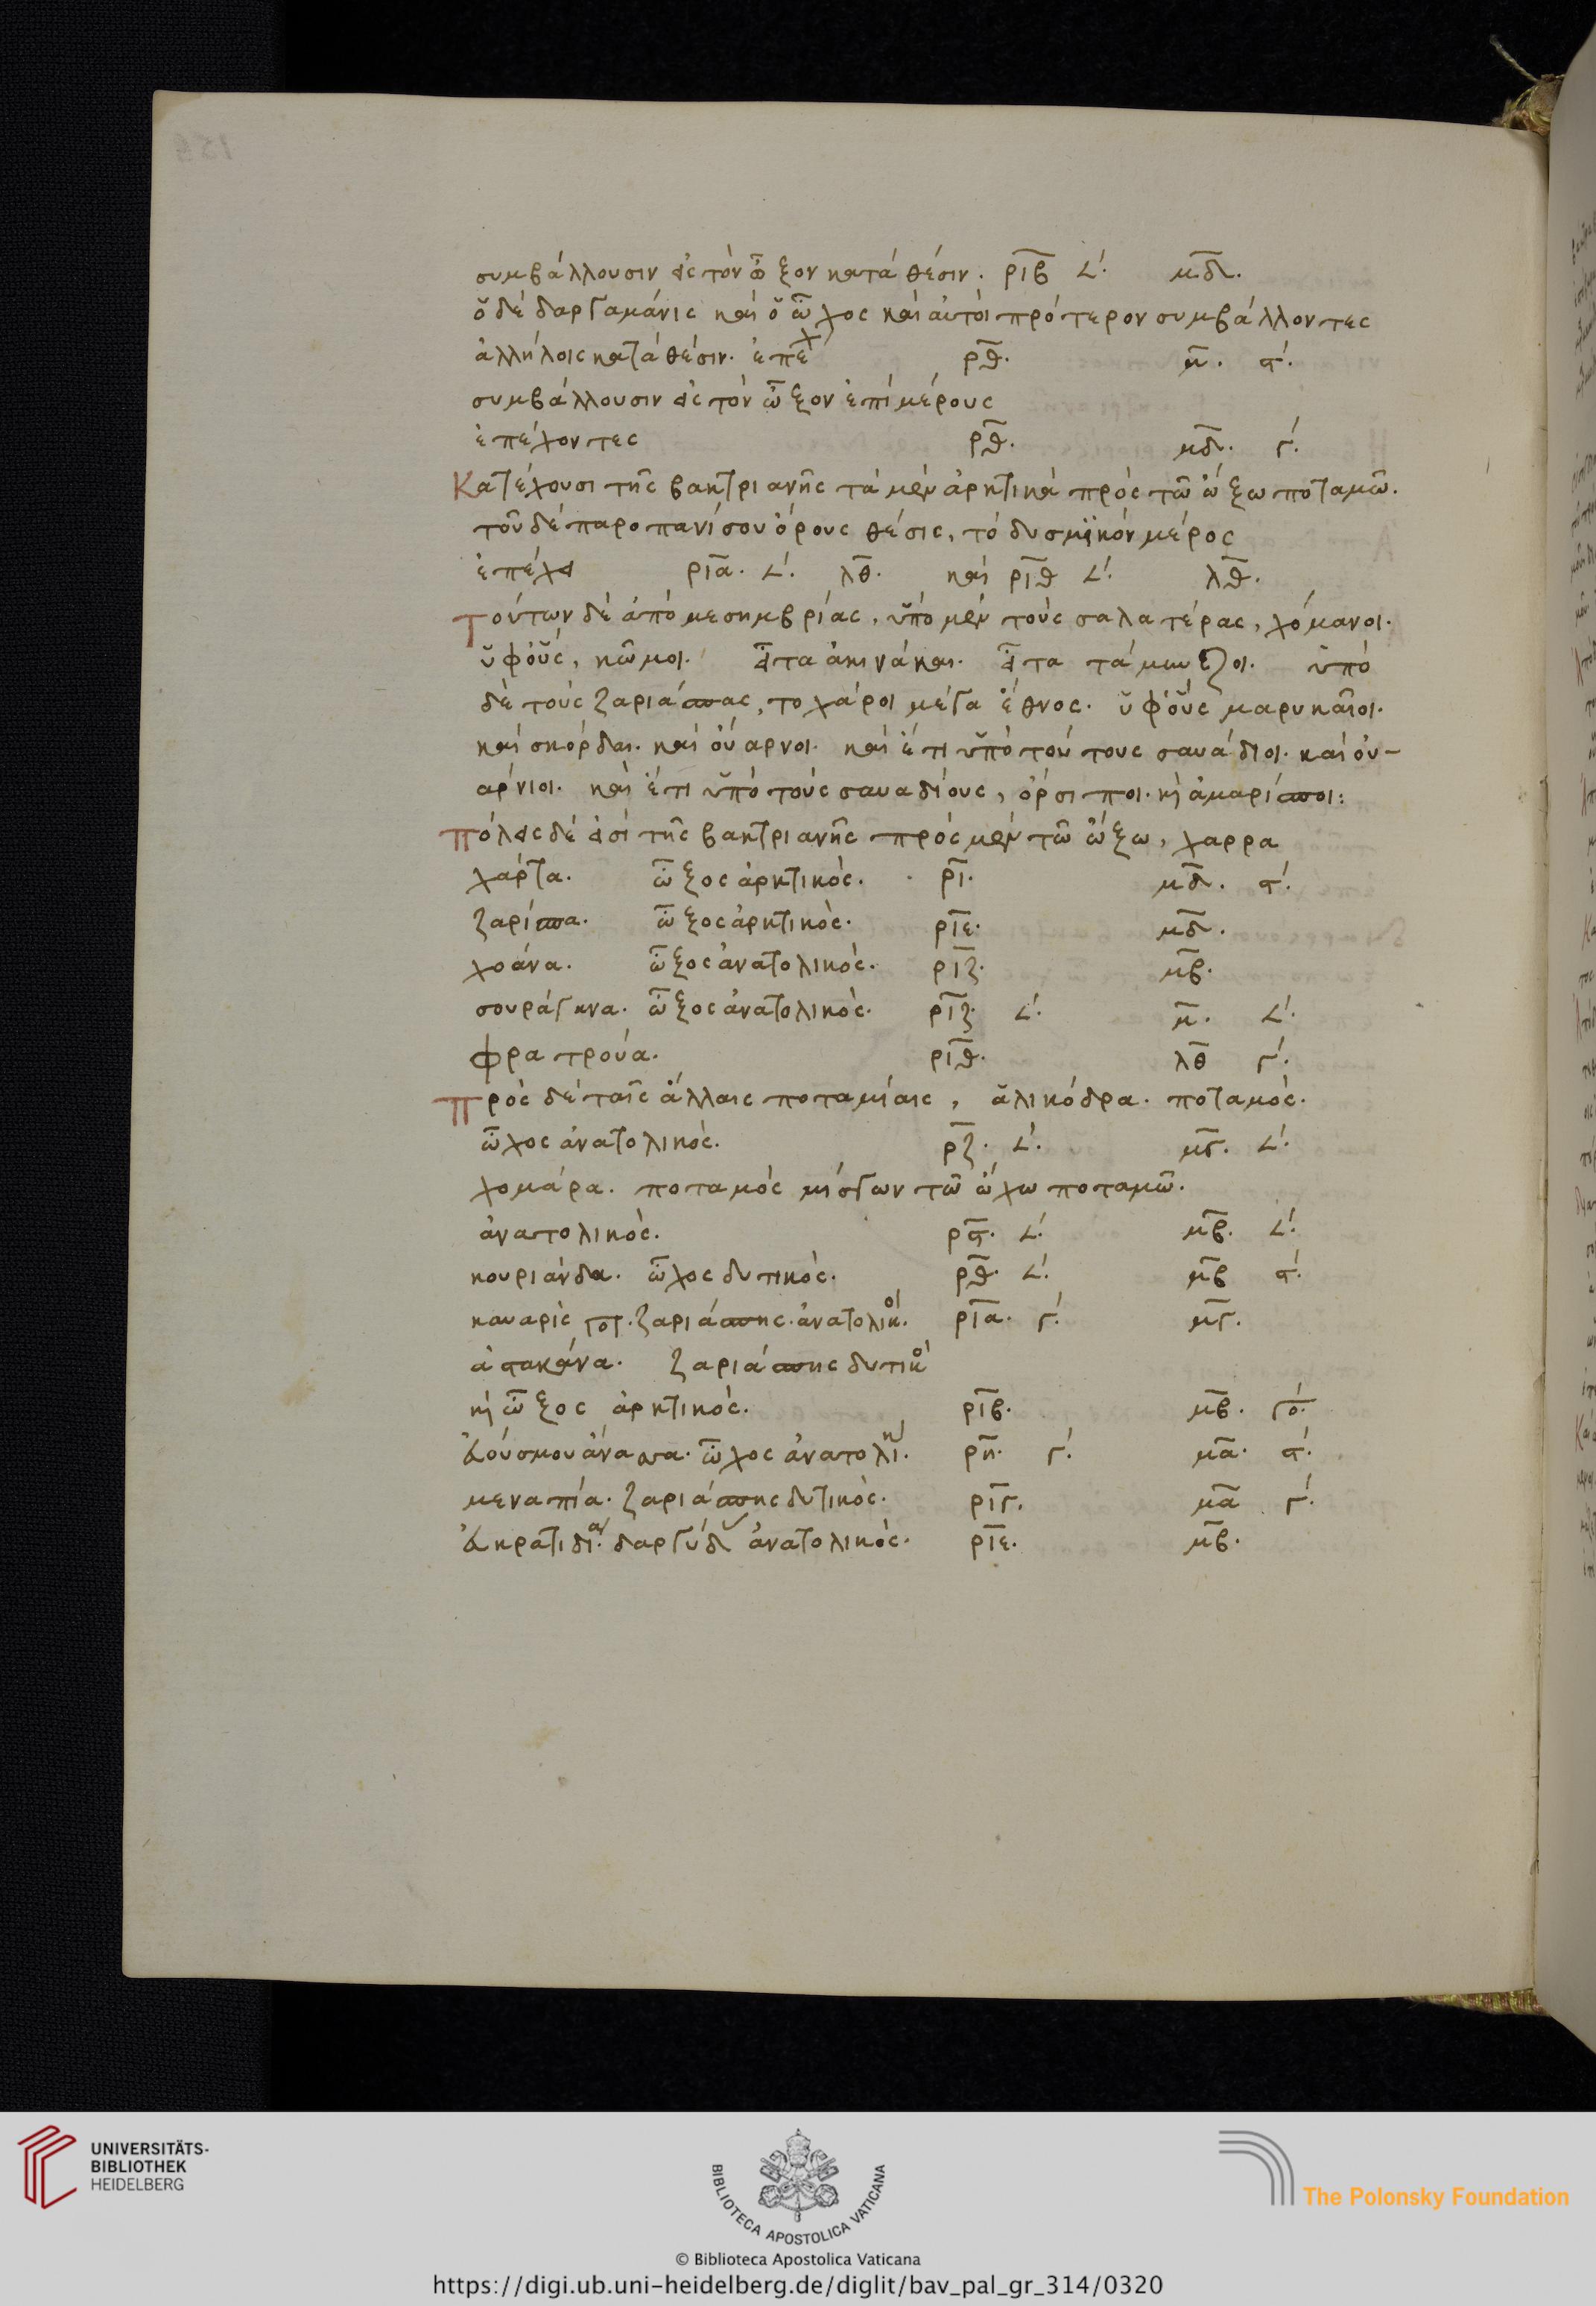 συμβάλλουσιν εἰς τὸν ὦξον κατὰ θέσιν. ριβ ∠´. μδ.
ὁ δὲ δαργαμάνις καὶ ὁ ὦχος καὶ αὐτοὶ πρότερον συμβάλλοντες
ἀλλήλοις κατὰ θέσιν. ἐπέχ ρθ. μ. ϛ´.
συμβάλλουσιν εἰς τὸν ὦξον ἐπὶ μέρους
ἐπέχοντες ρθ. μδ. γ´.
Κατέχουσι τῆς βακτριανῆς τὰ μὲν ἀρκτικὰ πρὸς τῶ ὤξω ποταμῶ.
τοῦ δὲ παροπανίσου ὄρους θέσις, τὸ δυσμϊκὸν μέρος
ἐπέχει ρια. ∠´. λθ. καὶ ριθ ∠´. λθ.
Τούτων δὲ ἀπὸ μεσημβρίας, ὑπὸ μὲν τοὺς σαλατέρας, χόμανοι.
ὑφ' οὓς, κῶμοι. εἶτα ἀκινάκαι. εἶτα τάμβυζοι. ὑπὸ
δὲ τοὺς ζαριάσπας, τοχάροι μέγα ἔθνος. ὑφ' οὓς μαρυκαῖοι.
καὶ σκόρδαι. καὶ οὔαρνοι. καὶ ἔτι ὑπὸ τούτους σαυάδιοι. καὶ οὐ-
αρνιοι. καὶ ἔτι ὑπὸ τοὺς σαυαδίους, ὀρσιποι. κὶ ἀμαρίσποι:
Πόλεις δὲ εἰσὶ τῆς βακτριανῆς πρὸς μὲν τῶ ὤξω, χαρρα
χάρτα. ὦξος ἀρκτικὸς. ρι. μδ. ϛ´.
ζαρίσπα. ὦξος ἀρκτικὸς. ριε. μδ.
χοάνα. ὦξος ἀνατολικὸς. ριζ. μβ.
σουράγκνα. ὦξος ἀνατολικὸς. ριζ. ∠´. μ. ∠´.
φρατρούα. ριθ. λθ γ´.
Πρὸς δὲ ταῖς ἄλλαις ποταμίαις, ἁλικόδρα. ποταμὸς.
ὦχος ἀνατολικὸς. ρζ. ∠´. μγ. ∠´.
χομάρα. ποταμὸς μίσγων τῶ ὤχω ποταμῶ.
ἀνατολικὸς. ρϛ. ∠´. μβ. ∠´.
κουριάνδα. ὦχος δυτικὸς. ρθ. ∠´. μβ ϛ´.
καυαρὶς ζαριάσπης. ἀνατολικ. ρια. γ´. μγ.
ἀστακάνα. ζαριάσπης δυτικὸ
κὶ ὦξος ἀρκτικὸς. ριβ. μβ. γο´.
ἐβούσμου ἄνασσα. ὦχος ἀνατολικ. ρη. γ´. μα. ϛ´.
μεναπία. ζαριάσπης δυτικὸς. ριγ. μα γ´.
εὐκρατιδία. δαργύδ ἀνατολικὸς. ριε. μβ.
UNIVERSITÄTS-
BIBLIOTHEK
HEIDELBERG
BIBLIOTECA APOSTOLICA VATICANA
The Polonsky Foundation
© Biblioteca Apostolica Vaticana
https://digi.ub.uni-heidelberg.de/diglit/bav_pal_gr_314/0320